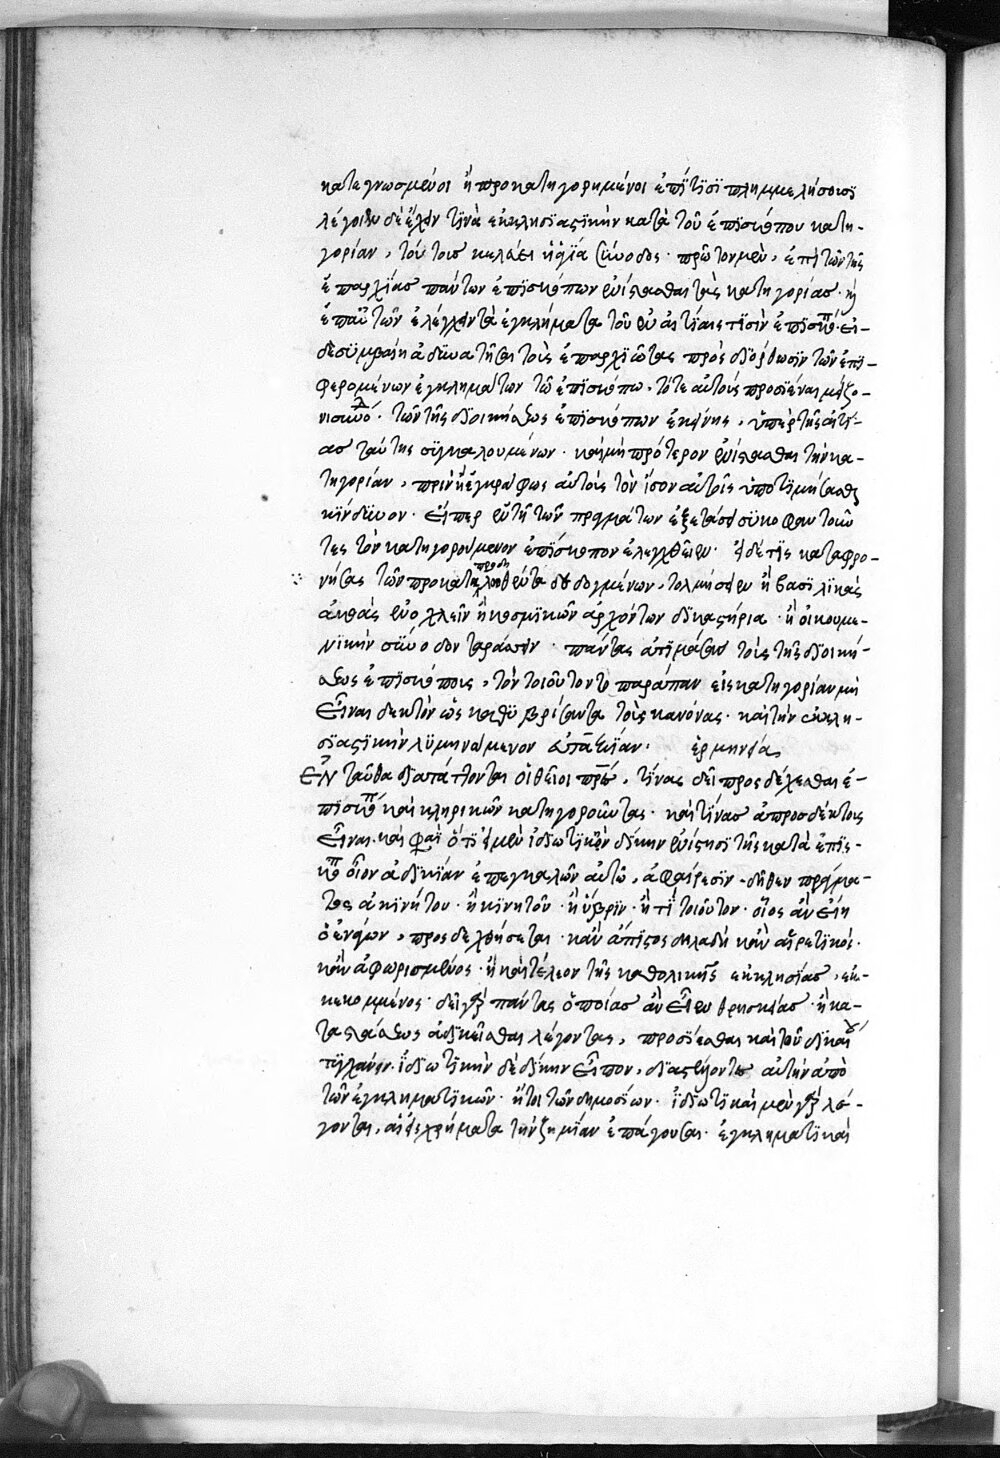 κατεγνωσμένοι ἢ προκατηγορημένοι ἐπί τισι πλημμελήσουσι
λέγοιεν δὲ ἔχειν τινὰ ἐκκλησιαστικὴν κατὰ τοῦ ἐπισκόπου κατη-
γορίαν, τούτοισ κελεύει ἡ ἁγία σύνοδος· πρῶτον μὲν, ἐπὶ τῶν τῆς
ἐπαρχίασ πάντων ἐπισκόπων ἐνίστασθαι τὰς κατηγορίασ· καὶ
ἐπ' αὐτῶν ἐλέγχειν τὰ ἐγκλήματα τοῦ ἐν αἰτίαις τισὶν ἐπισκόπ· εἰ-
δὲ συμβαίη ἀδυνατῆσαι τοὺς ἐπαρχιώτας πρὸς διόρθωσιν τῶν ἐπι-
φερομένων ἐγκλημάτων τῶ ἐπισκόπω, τότε αὐτοὺς προσιέναι μείζο-
νι συνόδ· τῶν τῆς διοικήσεως ἐπισκόπων ἐκείνης, ὑπὲρ τῆς αἰτί-
ασ ταύτης συγκαλουμένων· καὶ μὴ πρότερον ἐνίστασθαι τὴν κα-
τηγορίαν, πρὶν ἢ ἐγγράφως αὐτοὺς τὸν ἴσον αὐτοῖς ὑποτιμήσασθαι
κίνδυνον· εἴπερ ἐν τῇ τῶν πραγμάτων ἐξετάσει συκοφαντοῦν
τες τὸν κατηγορούμενον ἐπίσκοπον ἐλεγχθεῖεν· εἰ δέ τις καταφρο-
νήσας τῶν προκατὰ προδηλωθέντα δεδογμένων, τολμήσειεν ἢ βασιλικὰς
ἀκοὰς ἐνοχλεῖν ἢ κοσμικῶν ἀρχόντων δικαστήρια· ἢ οἰκουμε-
νικὴν σύνοδον ταράσσειν· πάντας ἀτιμάσασ τοὺς τῆς διοική-
σεως ἐπισκόπους, τὸν τοιοῦτον τὸ παράπαν εἰς κατηγορίαν μὴ
εἶναι δεκτὸν ὡς καθυβρίσαντα τοὺς κανόνας· καὶ τὴν ἐκκλη-
σιαστικὴν λυμηνάμενον εὐταξίαν· ἑρμηνεία
ΕΝταῦθα διατάττονται οἱ θεῖοι πρες, τίνας δεῖ προσδέχεσθαι ἐ-
πισκόπ καὶ κληρικῶν κατηγοροῦντας· καὶ τίνασ ἀπροσδέκτους
εἶναι· καί φασι ὅτι εἰ μὲν ἰδιωτικὴν δίκην ἐνίστησι τῆς κατὰ ἐπισ-
κόπ οἷον ἀδικίαν ἐπεγκαλῶν αὐτῶ, ἀφαίρεσιν δῆθεν πράγμα-
τος ἀκινήτου· ἢ κινητοῦ· ἢ ὕβριν· ἤ τι τοιοῦτον· οἷος ἂν εἴη
ὁ ἐνάγων, προσδεχθήσεται· κἂν ἄπιστος δηλαδὴ κἂν αἱρετικός·
κἂν ἀφωρισμένος· ἢ καὶ τέλεον τῆς καθολικῆς ἐκκλησίασ, ἐκ-
κεκομμένος· δεῖ γὰρ πάντας ὁποίασ ἂν εἶεν θρησκείασ· ἢ κα-
ταστάσεως ἀδικεῖσθαι λέγοντας, προσίεσθαι καὶ τοῦ δικαίου
τυγχάνειν· ἰδιωτικὴν δὲ δίκην εἶπον, διαστέλλοντες αὐτὴν ἀπὸ
τῶν ἐγκληματικῶν· ἤτοι τῶν δημοσίων· ἰδιωτικαὶ μὲν γὰρ λέ-
γονται, αἱ εἰς χρήματα τὴν ζημίαν ἐπάγουσαι· ἐγκληματικαὶ